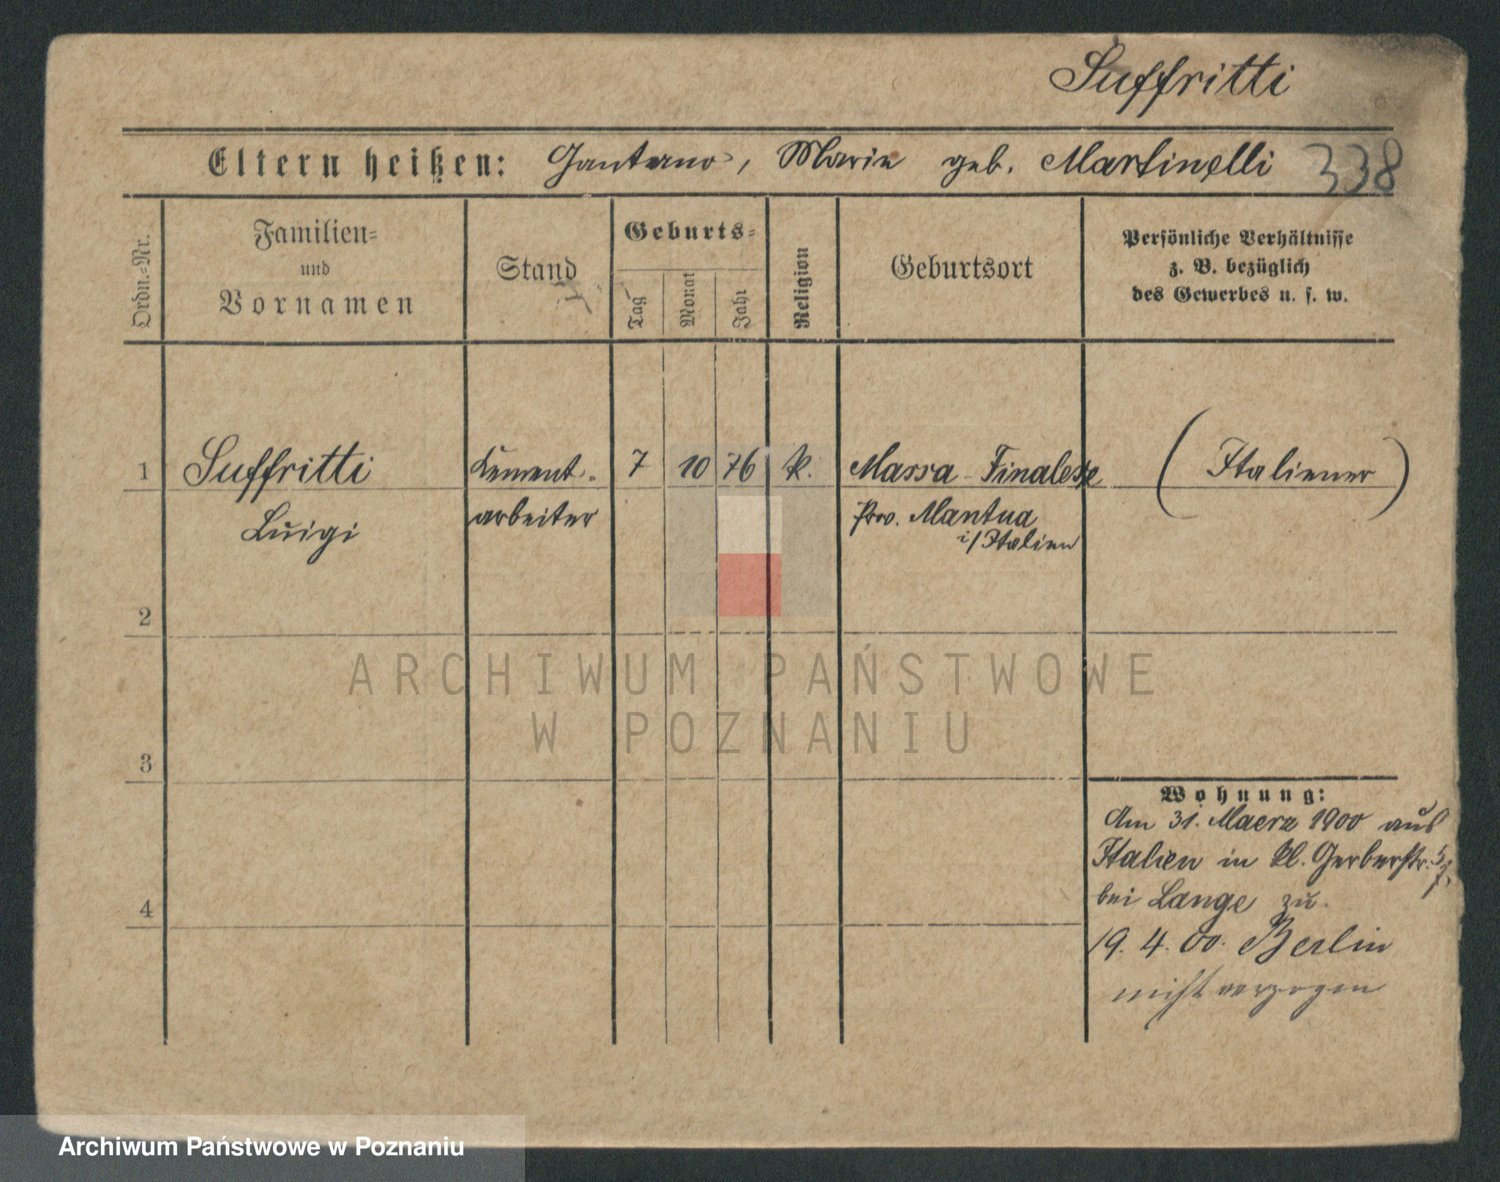 Suffritti
Eltern heißen: Gantano, Marie geb. Martinelli 338
Ordn.-Nr.
Familien-
und
Vornamen
Stand
Geburts-
Tag
Monat
Jahr
Religion
Geburtsort
Persönliche Verhältnisse
z. B. bezüglich
des Gewerbes u. s. w.
1 Suffritti Cement- 7 10 76 k. Massa-Finalese (Italiener)
Luigi arbeiter Prov. Mantua
i/Italien
2
3
4
Wohnung:
Am 31. Maerz 1900 aus
Italien in kl. Gerberstr.
bei Lange zu.
19. 4. 00. Berlin
nicht verzogen
ARCHIWUM PAŃSTWOWE
W POZNANIU
Archiwum Państwowe w Poznaniu